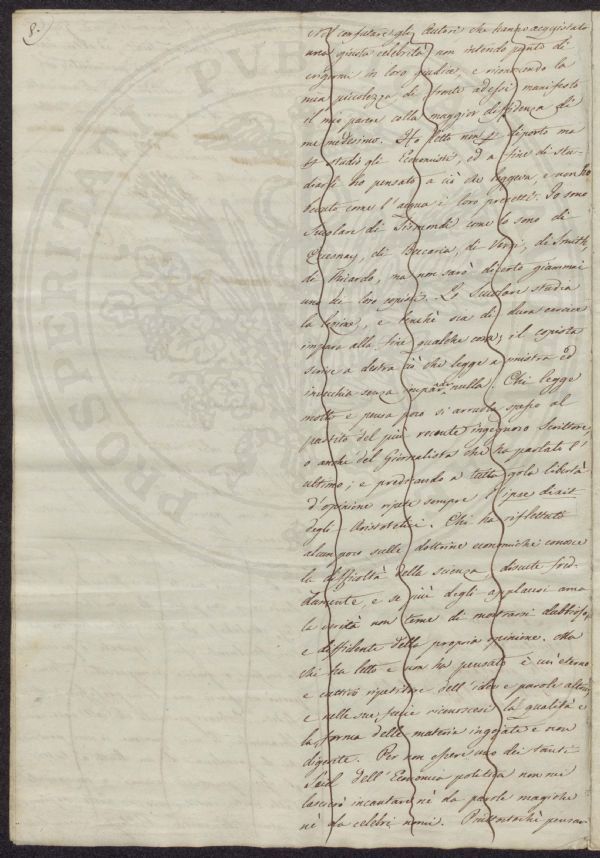 8.
Nel confutare gli Autori che hanno acquistato
una giusta celebrità non intendo punto di
erigermi in loro giudice, e riconoscendo la
mia piccolezza di fronte ad essi manifesto
il mio parere colla maggior diffidenza di
me medesimo. Ho letto non p. diporto ma
p. studio gli Economisti, ed a fine di stu-
diarli ho pensato a ciò che leggeva, e non ho
bevuto come l'acqua i loro precetti. Io sono
Scolare di Sismondi come lo sono di
Quesnay, di Beccaria, di Verri, di Smith,
di Ricardo, ma non sarò di certo giammai
uno dei loro copisti. Lo Scolare studia
la lezione, e benchè sia di dura cervice
impara alla fine qualche cosa; il copista
scrive a destra ciò che legge a sinistra ed
invecchia senza imparar nulla. Chi legge
molto e pensa poco si arruola spesso al
partito del più recente ingegnoso Scrittore,
o anche del Giornalista che ha parlato l'
ultimo; e predicando a tutta gola libertà
d'opinione ripete sempre l'ipse dixit
degli Aristotelici. Chi ha riflettuto
alcun poco sulle dottrine economiche conosce
la difficoltà della scienza, discute fred-
damente, e se più degli applausi ama
la verità non teme di mostrarsi dubbioso,
e diffidente della propria opinione. Ma
chi ha letto e non ha pensato è un eterno
e cattivo ripetitore dell'idee e parole altrui,
e nelle sue riconoscesi la qualità e
la forma delle materie ingojate e non
digerite. Per non essere uno dei tanti
dell'Economia politica non mi
lascierò incantare nè da parole magiche
nè da celebri nomi. Piuttostochè pensar